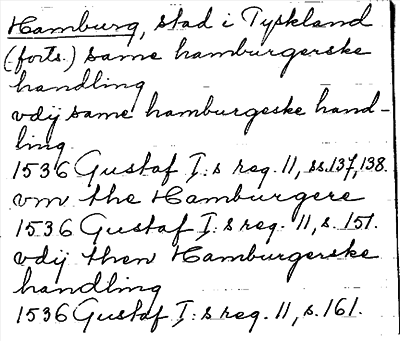 Hamburg, stad i Tyskland
(forts.) same hamburgerske
handling
vdij same hamburgeske hand-
ling.
1536 Gustaf I:s reg. 11, ss. 137, 138.
vm the Hamburgere
1536 Gustaf I:s reg. 11, s. 151.
vdij then Hamburgerske
handling
1536 Gustaf I:s reg. 11, s. 161.